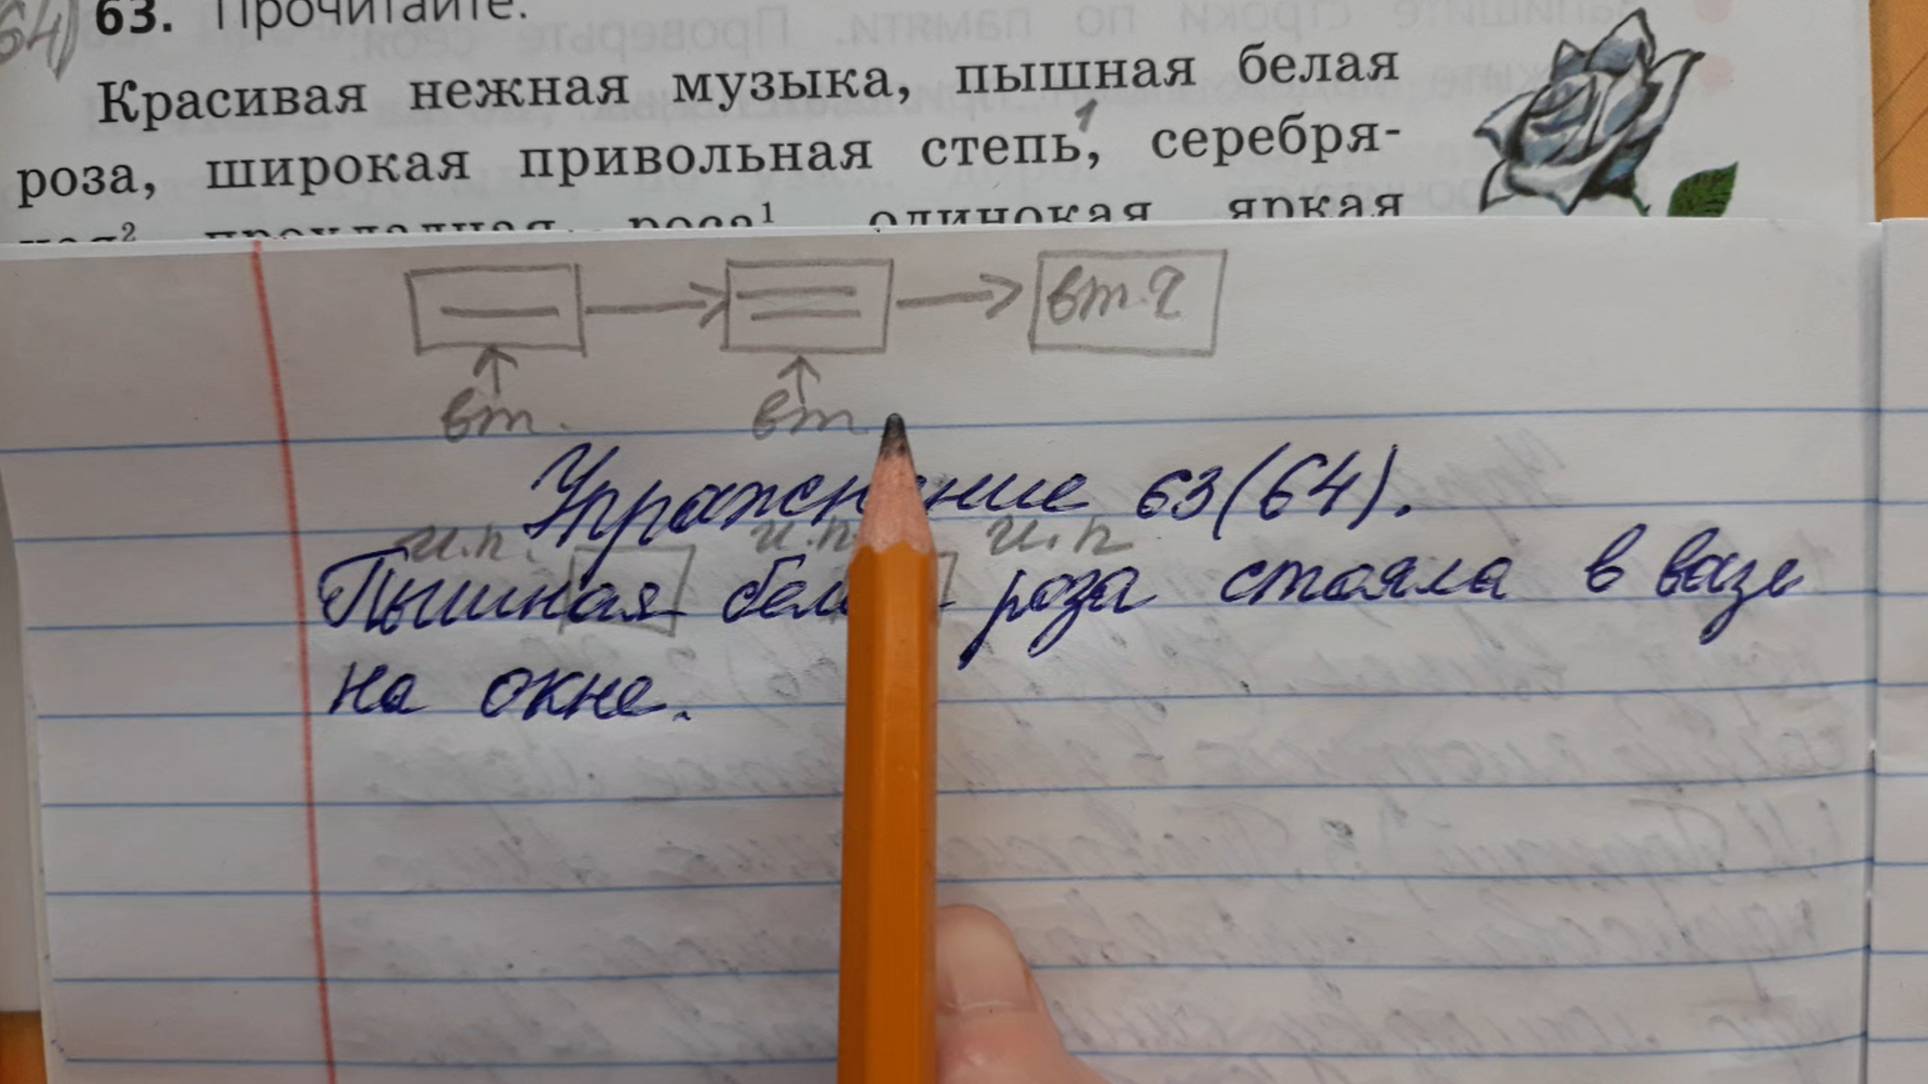 64) 63. Прочитайте.
Красивая нежная музыка, пышная белая
роза, широкая привольная степь¹, серебря-
ная² прохладная роса¹ одинокая яркая
вт. ч
вт. вт.
Упражнение 63(64).
и.п. и.п. и.п
Пышная белая роза стояла в вазе
на окне.